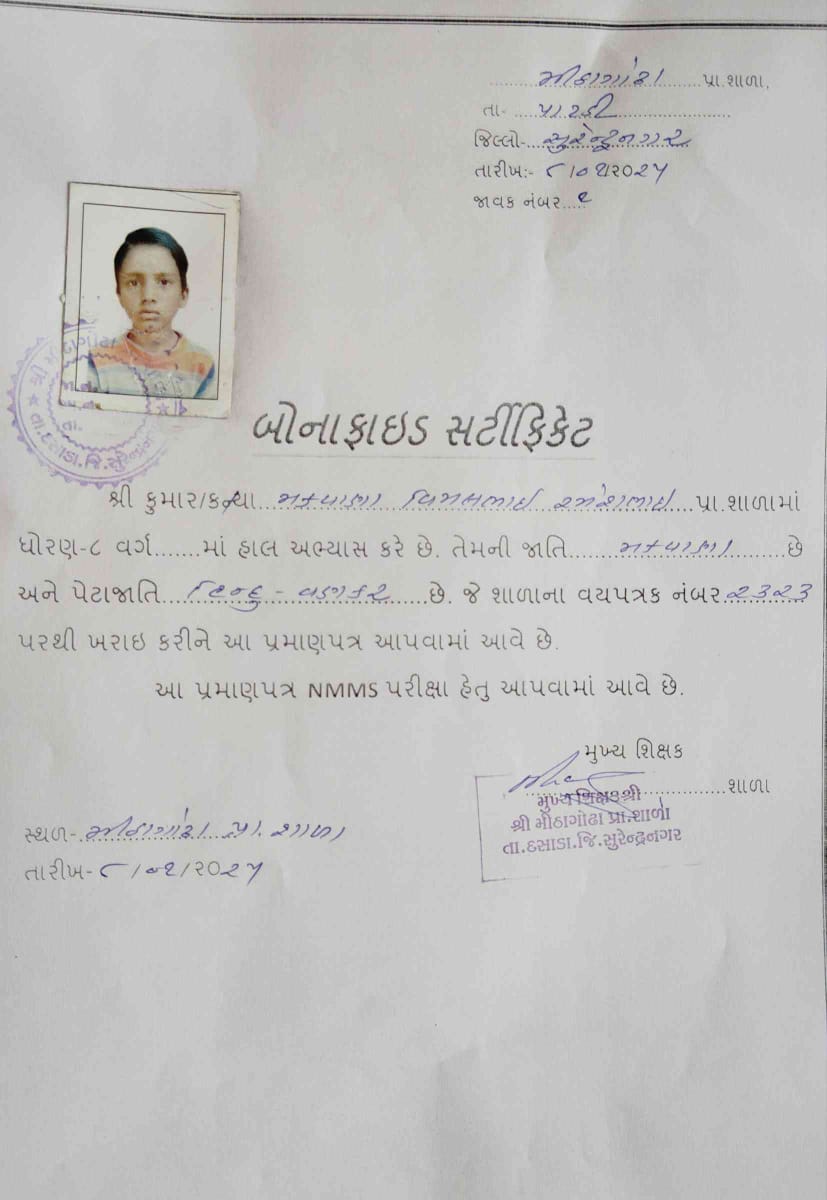 મીઠાગોઢા પ્રા.શાળા,
તા- પાટડી
જિલ્લો- સુરેન્દ્રનગર
તારીખ:- ૮/૦૧/૨૦૨૫
જાવક નંબર ૯
ગોઢા
તા.દસાડા.જિ.સુરેન્દ્રનગર
બોનાફાઇડ સર્ટીફિકેટ
શ્રી કુમાર/કન્યા મકવાણા વિમલભાઇ રમેશભાઇ પ્રા.શાળામાં
ધોરણ-૮ વર્ગ.......માં હાલ અભ્યાસ કરે છે. તેમની જાતિ મકવાણા છે
અને પેટાજાતિ હિન્દુ - વણકર છે. જે શાળાના વયપત્રક નંબર ૨૩૨૩
પરથી ખરાઇ કરીને આ પ્રમાણપત્ર આપવામાં આવે છે.
આ પ્રમાણપત્ર NMMS પરીક્ષા હેતુ આપવામાં આવે છે.
મુખ્ય શિક્ષક
શાળા
મુખ્ય શિક્ષકશ્રી
શ્રી મીઠાગોઢા પ્રા.શાળા
તા.દસાડા.જિ.સુરેન્દ્રનગર
સ્થળ- મીઠાગોઢા પ્રા. શાળા
તારીખ- ૮/૦૧/૨૦૨૫